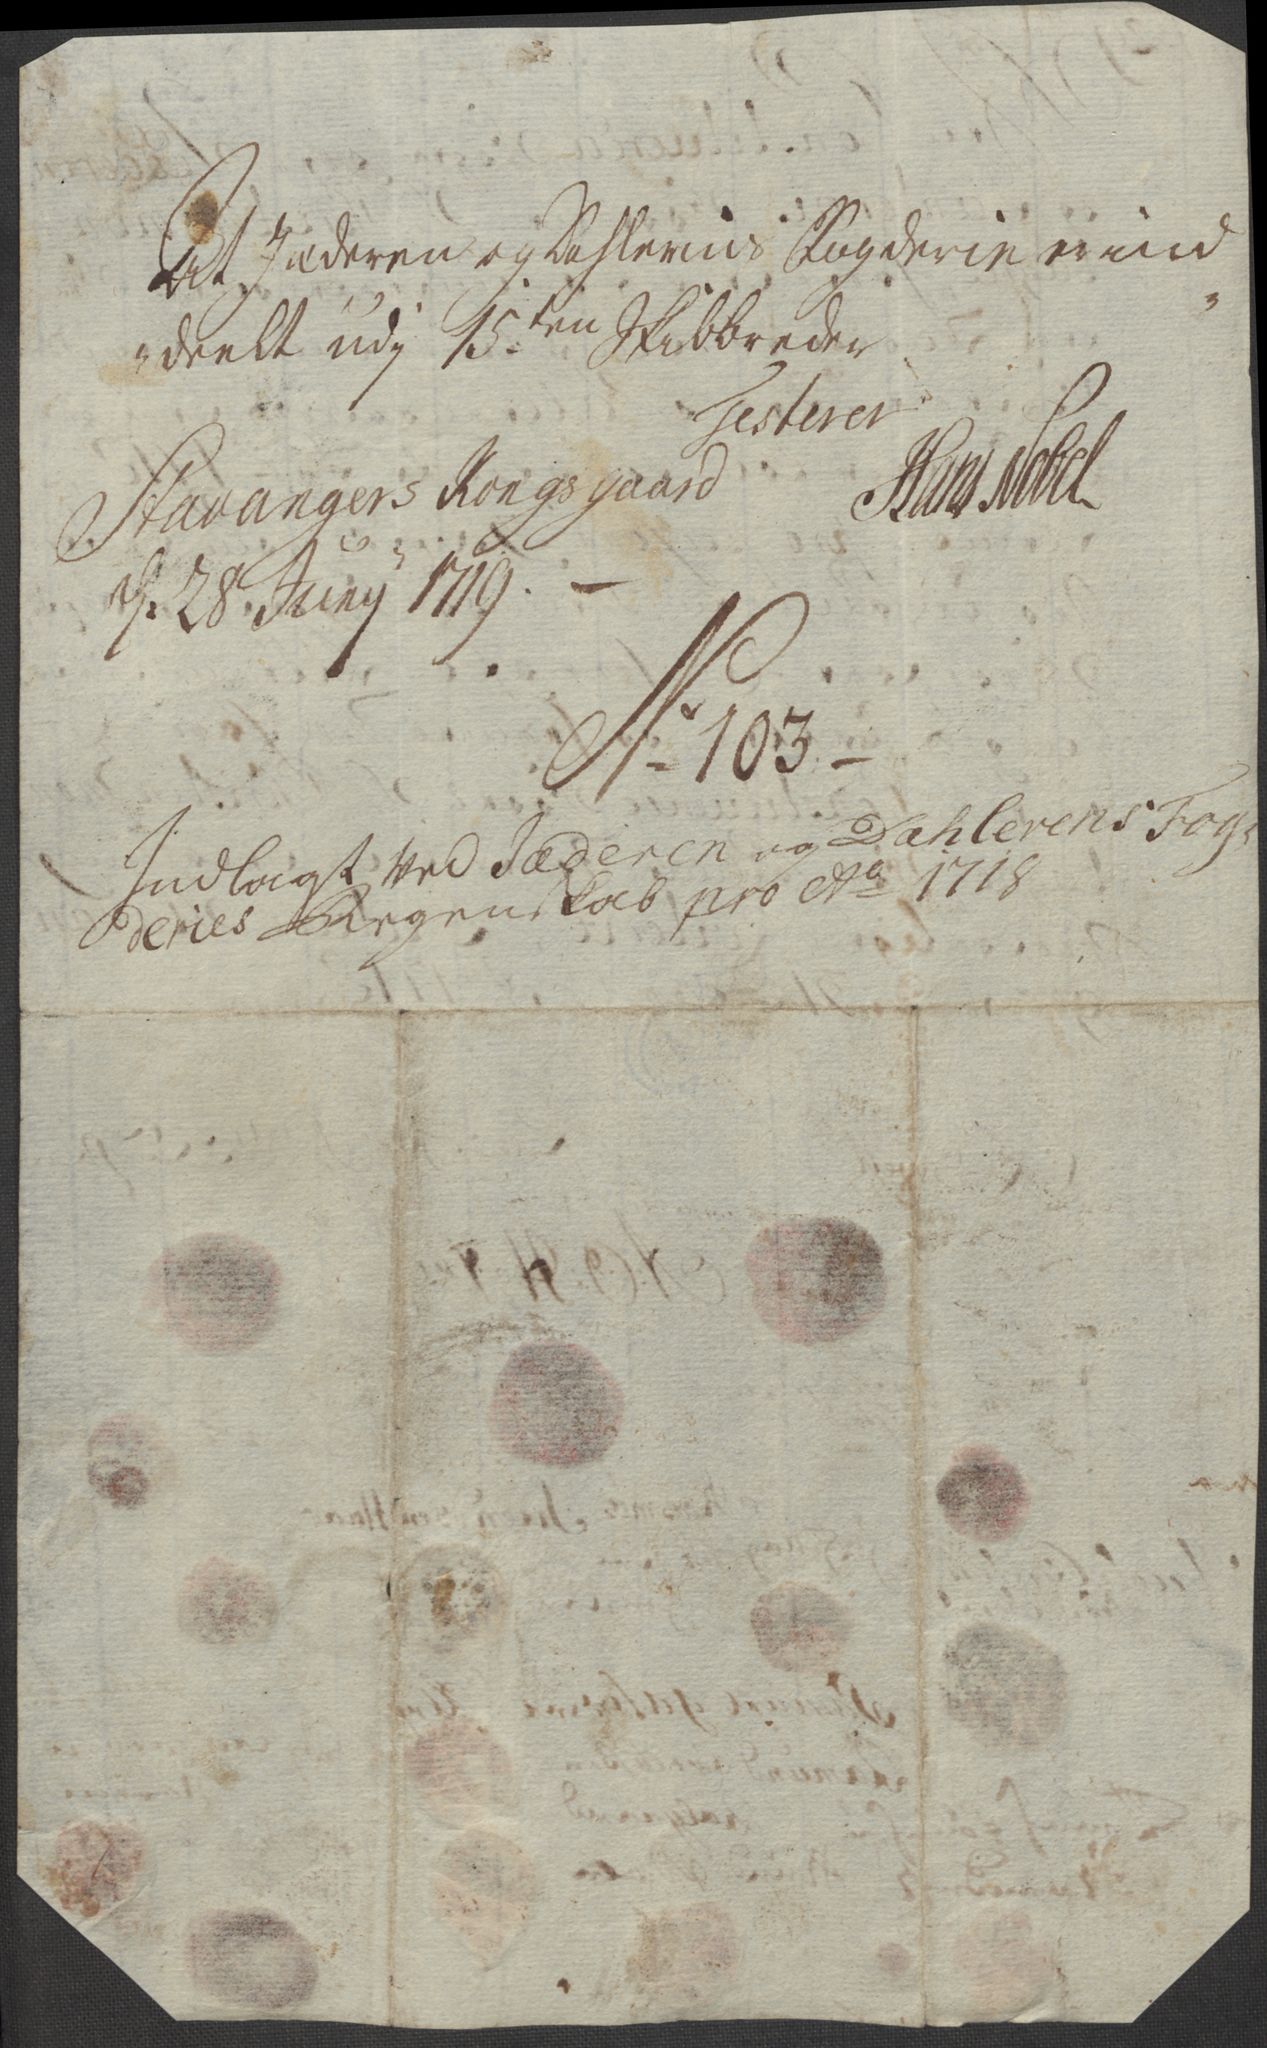 At Jæderen og Dahlerns Fogderie er ind
deelt udj 15ten Skibbreder
Testerer
Stavangers Kongsgaard
Hans Nobel
d. 28 Junij 1719. —
No 103. —
Indlagt ved Jæderen og Dahlerens Fog-
deries Regenskab pro Ao 1718